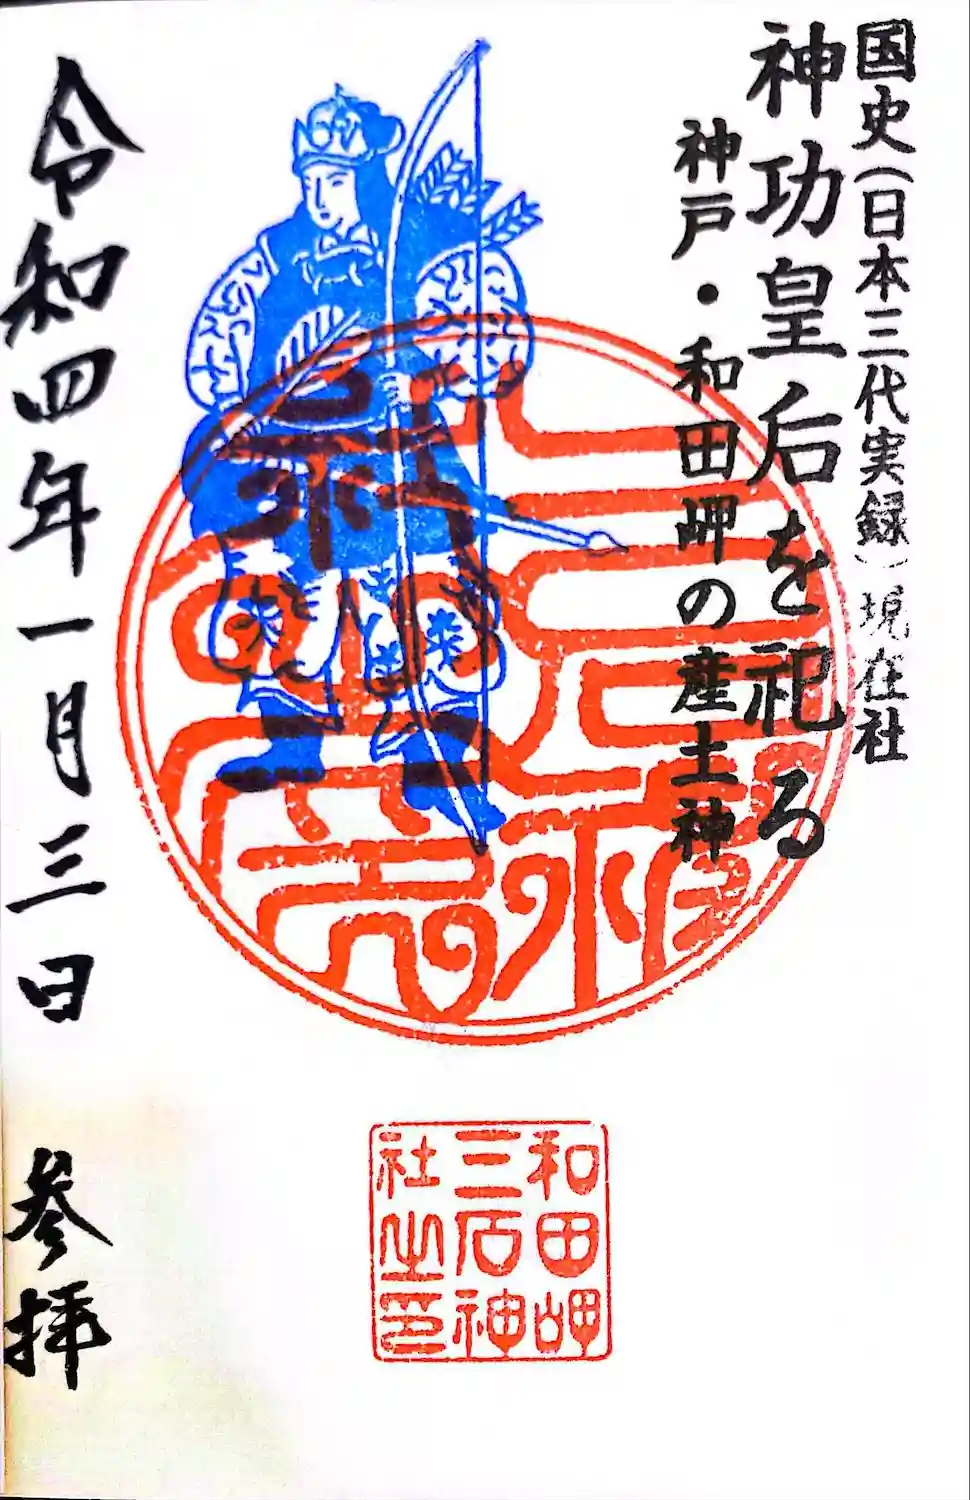 国史(日本三代実録)現在社
神功皇后を祀る
神戸・和田岬の産土神
令和四年一月三日 参拝
和田岬
三石神
社之印